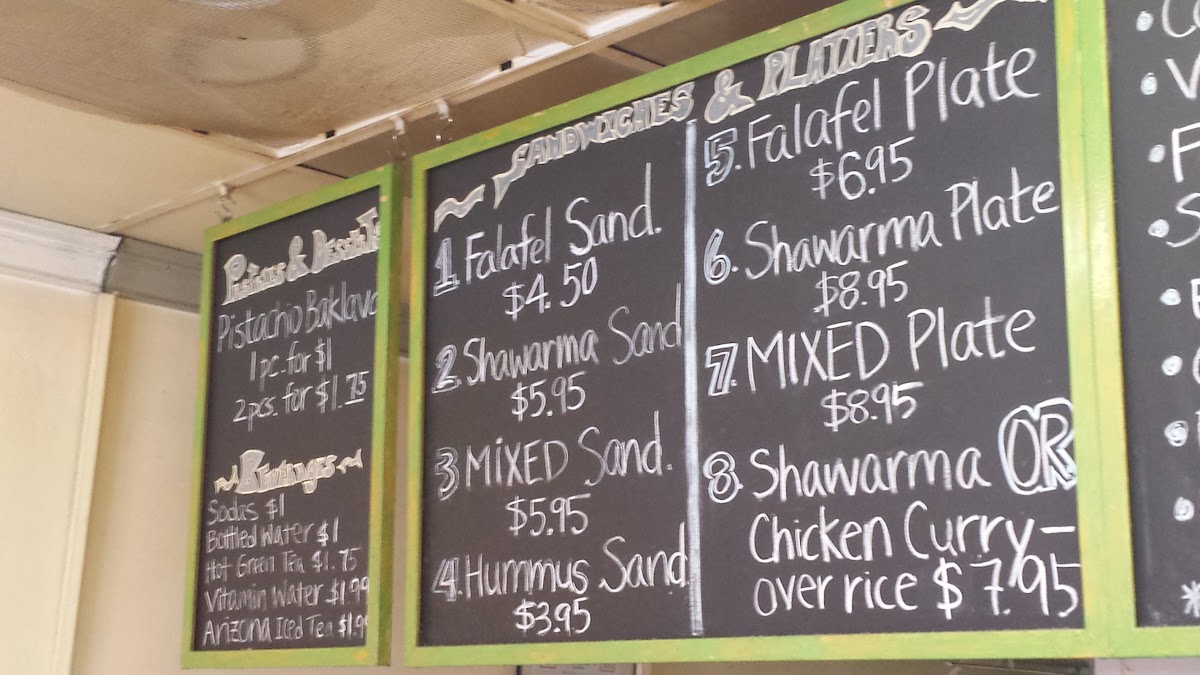 Pistachio Baklava
1 pc. for $1
2 pcs. for $1.75
~Beverages~
Sodas $1
Bottled Water $1
Hot Green Tea $1.75
Vitamin Water $1.99
Arizona Iced Tea $1.9
SANDWICHES & PLATTERS
1. Falafel Sand.
$4.50
2. Shawarma Sand
$5.95
3 MiXED Sand.
$5.95
4. Hummus Sand
$3.95
5. Falafel Plate
$6.95
6. Shawarma Plate
$8.95
7. MIXED Plate
$8.95
8. Shawarma OR
Chicken Curry –
over rice $7.95